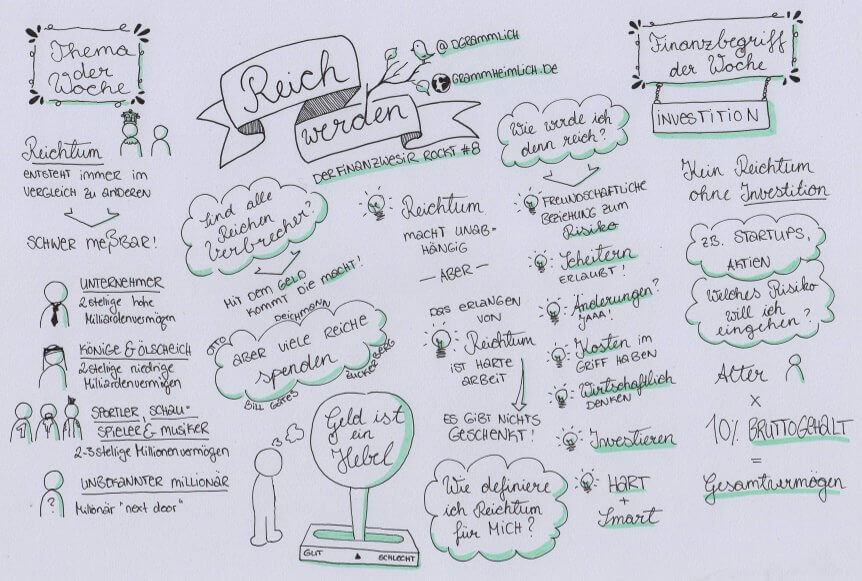 Thema
der
Woche
Reichtum
ENTSTEHT IMMER IM
VERGLEICH ZU ANDEREN
SCHWER MEßBAR!
UNTERNEHMER
2 stellige hohe
Milliardenvermögen
KÖNIGE & ÖLSCHEICH
2 stellige niedrige
Milliardenvermögen
SPORTLER, SCHAU-
SPIELER & MUSIKER
2-3 stellige Millionenvermögen
UNBEKANNTER MILLIONÄR
?
Millionär "next door"
Reich
werden
@DGRAMMLICH
GRAMMHEIMLICH.DE
DERFINANZWESIR ROCKT #8
Sind alle
Reichen
Verbrecher?
MIT DEM GELD
KOMMT DIE MACHT!
ABER VIELE REICHE
spenden
OTTO
DEICHMANN
BILL GATES
ZUCKERBERG
Geld ist
ein
Hebel
GUT
SCHLECHT
Reichtum
MACHT UNAB-
HÄNGIG
— ABER —
DAS ERLANGEN
VON
Reichtum
IST HARTE
ARBEIT
ES GIBT NICHTS
GESCHENKT!
Wie definiere
ich Reichtum
für MICH?
Wie werde ich
denn reich?
FREUNDSCHAFTLICHE
BEZIEHUNG ZUM
Risiko
Scheitern
ERLAUBT!
Änderungen?
JAAA!
Kosten IM
GRIFF HABEN
Wirtschaftlich
DENKEN
Investieren
HART
+
Smart
Finanzbegriff
der Woche
INVESTITION
Kein Reichtum
ohne Investition
ZB. STARTUPS,
AKTIEN
Welches Risiko
will ich
eingehen?
Alter
x
10% BRUTTOGEHALT
=
Gesamtvermögen